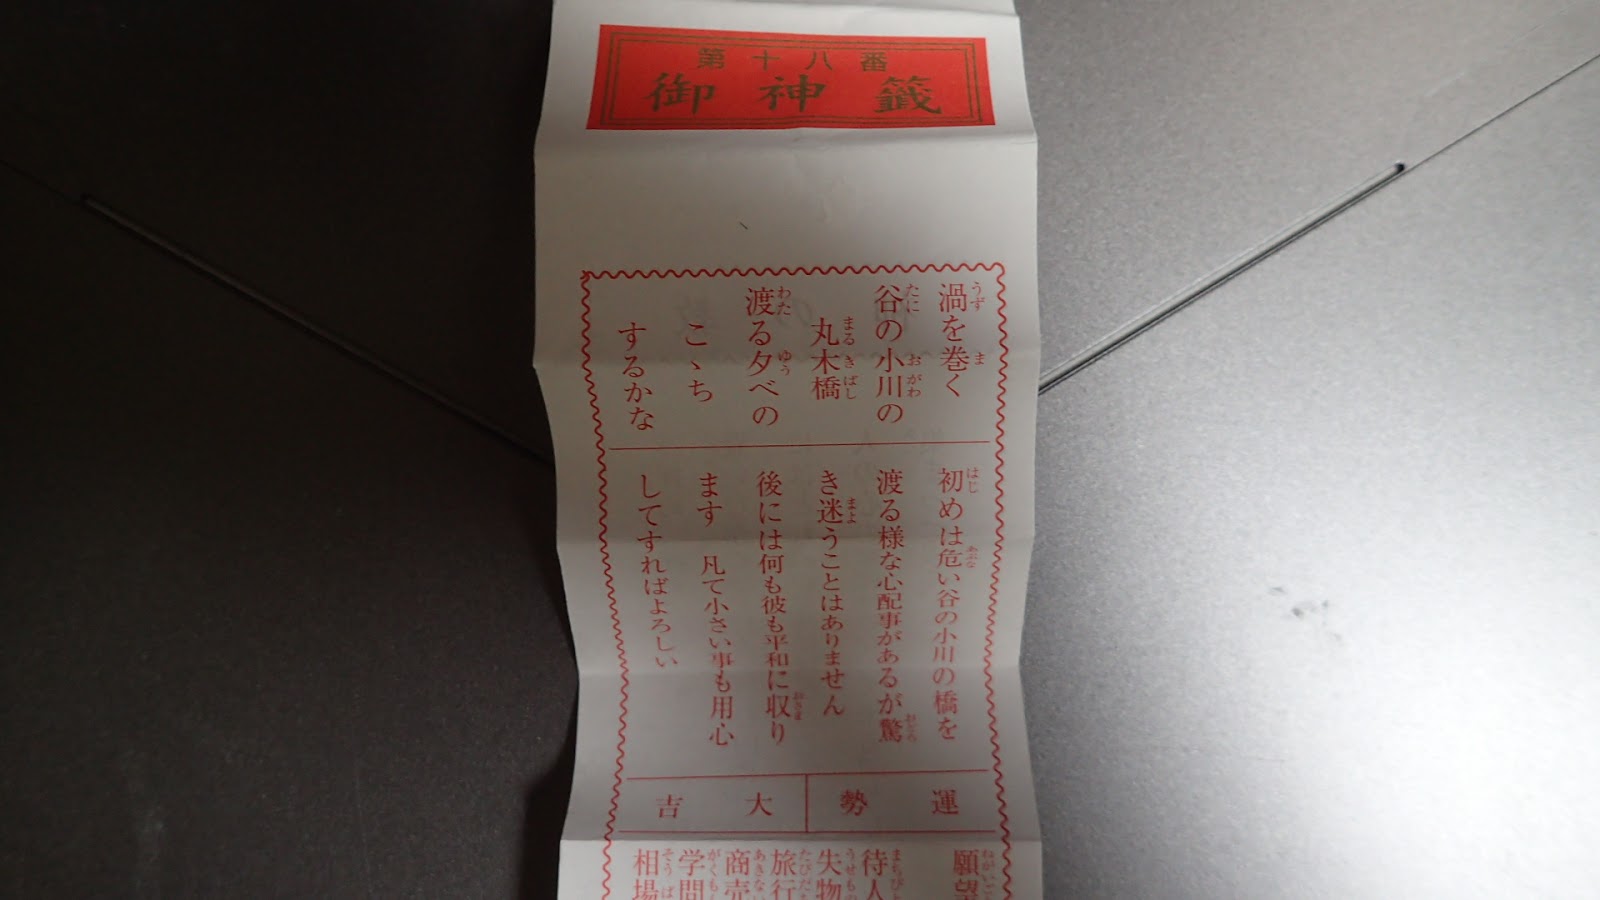 第十八番
御神籤
渦を巻く
谷の小川の
丸木橋
渡る夕べの
こゝち
するかな
初めは危い谷の小川の橋を
渡る様な心配事があるが驚
き迷うことはありません
後には何も彼も平和に収り
ます　凡て小さい事も用心
してすればよろしい
運勢
大吉
願望
待人
失物
旅行
商売
学問
相場